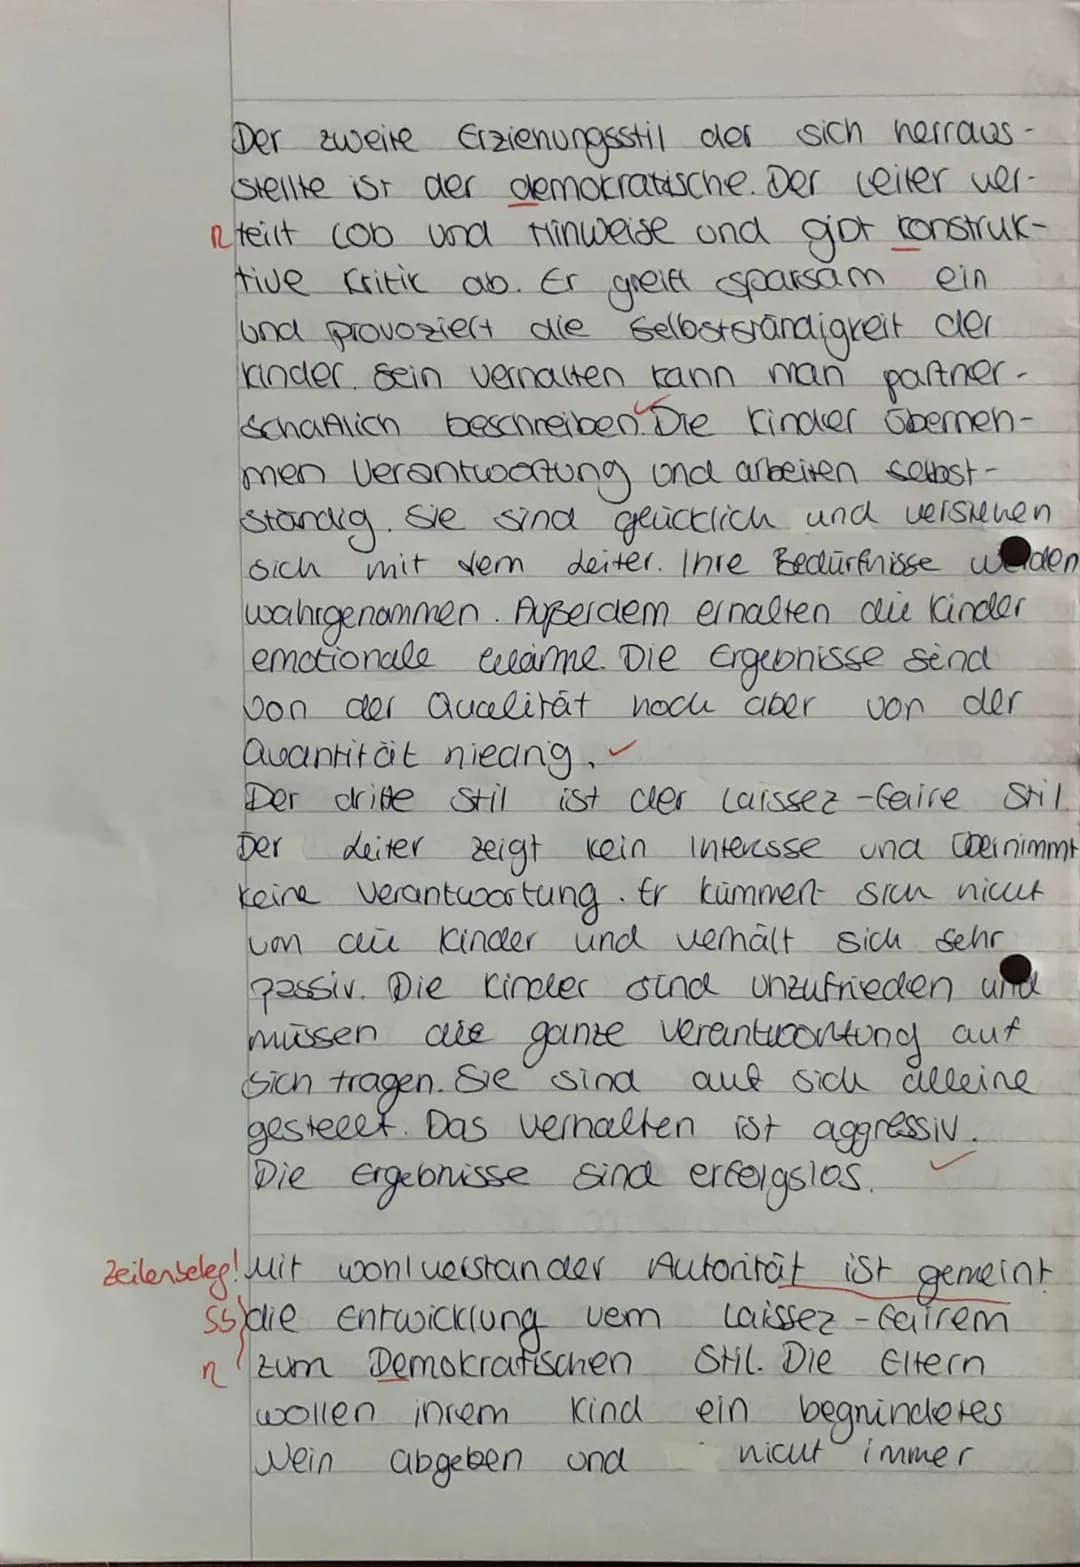 Der zweite Erziehungsstil der sich herraus-
stellte ist der demokratische. Der Leiter ver-
R teilt Lob und Hinweise und gibt konstruk-
tive Kritik ab. Er greift sparsam ein
und provoziert die Selbstständigkeit der
Kinder. Sein Verhalten kann man partner-
schaftlich beschreiben. Die Kinder überneh-
men Verantwortung und arbeiten selbst-
ständig. Sie sind glücklich und verstehen
sich mit dem Leiter. Ihre Bedürfnisse werden
wahrgenommen. Außerdem erhalten die Kinder
emotionale Wärme. Die Ergebnisse sind
von der Qualität hoch aber von der
Quantität niedrig.
Der dritte Stil ist der Laissez-faire Stil.
Der Leiter zeigt kein Interesse und übernimmt
keine Verantwortung. Er kümmert sich nicht
um die Kinder und verhält sich sehr
passiv. Die Kinder sind unzufrieden und
müssen die ganze Verantwortung auf
sich tragen. Sie sind auf sich alleine
gestellt. Das Verhalten ist aggressiv.
Die Ergebnisse sind erfolgslos.
Zeilenbeleg! Mit wohlverstandner Autorität ist gemeint
Sb die Entwicklung vom Laissez-fairem
R zum Demokratischen Stil. Die Eltern
wollen ihrem Kind ein begründetes
Nein abgeben und nicht immer